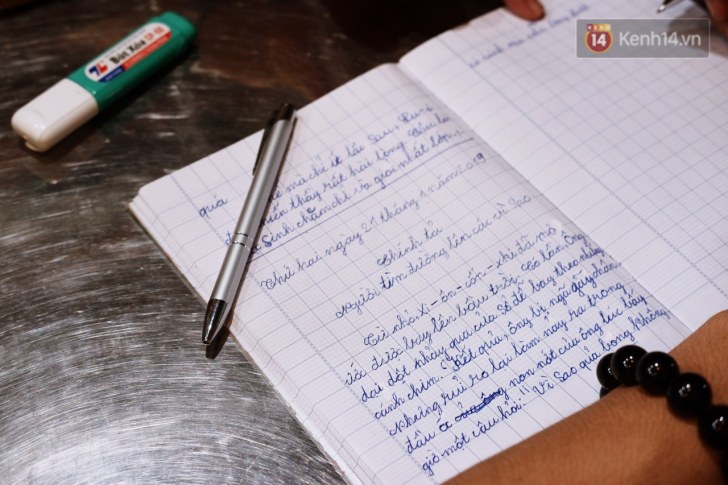 Kenh14.vn
14
Bút Xóa CP-02
TL
quá mà chỉ ít lâu sau,
thấy rất hài lòng
Sinh chăm chỉ và giỏi nhất lớp.
Thứ hai ngày 21 tháng 1 năm 2019
Chính tả
Người tìm đường lên các vì sao
Từ nhỏ Xi-ôn-cốp-xki đã mơ
ước được bay lên bầu trời. Có lần, ông
dại dột nhảy qua cửa sổ để bay theo những
cánh chim. Kết quả, ông bị ngã gãy chân.
Nhưng rủi ro lại làm nảy ra trong
đầu óc non nớt của ông lúc bấy
giờ một câu hỏi: "Vì sao quả bóng không